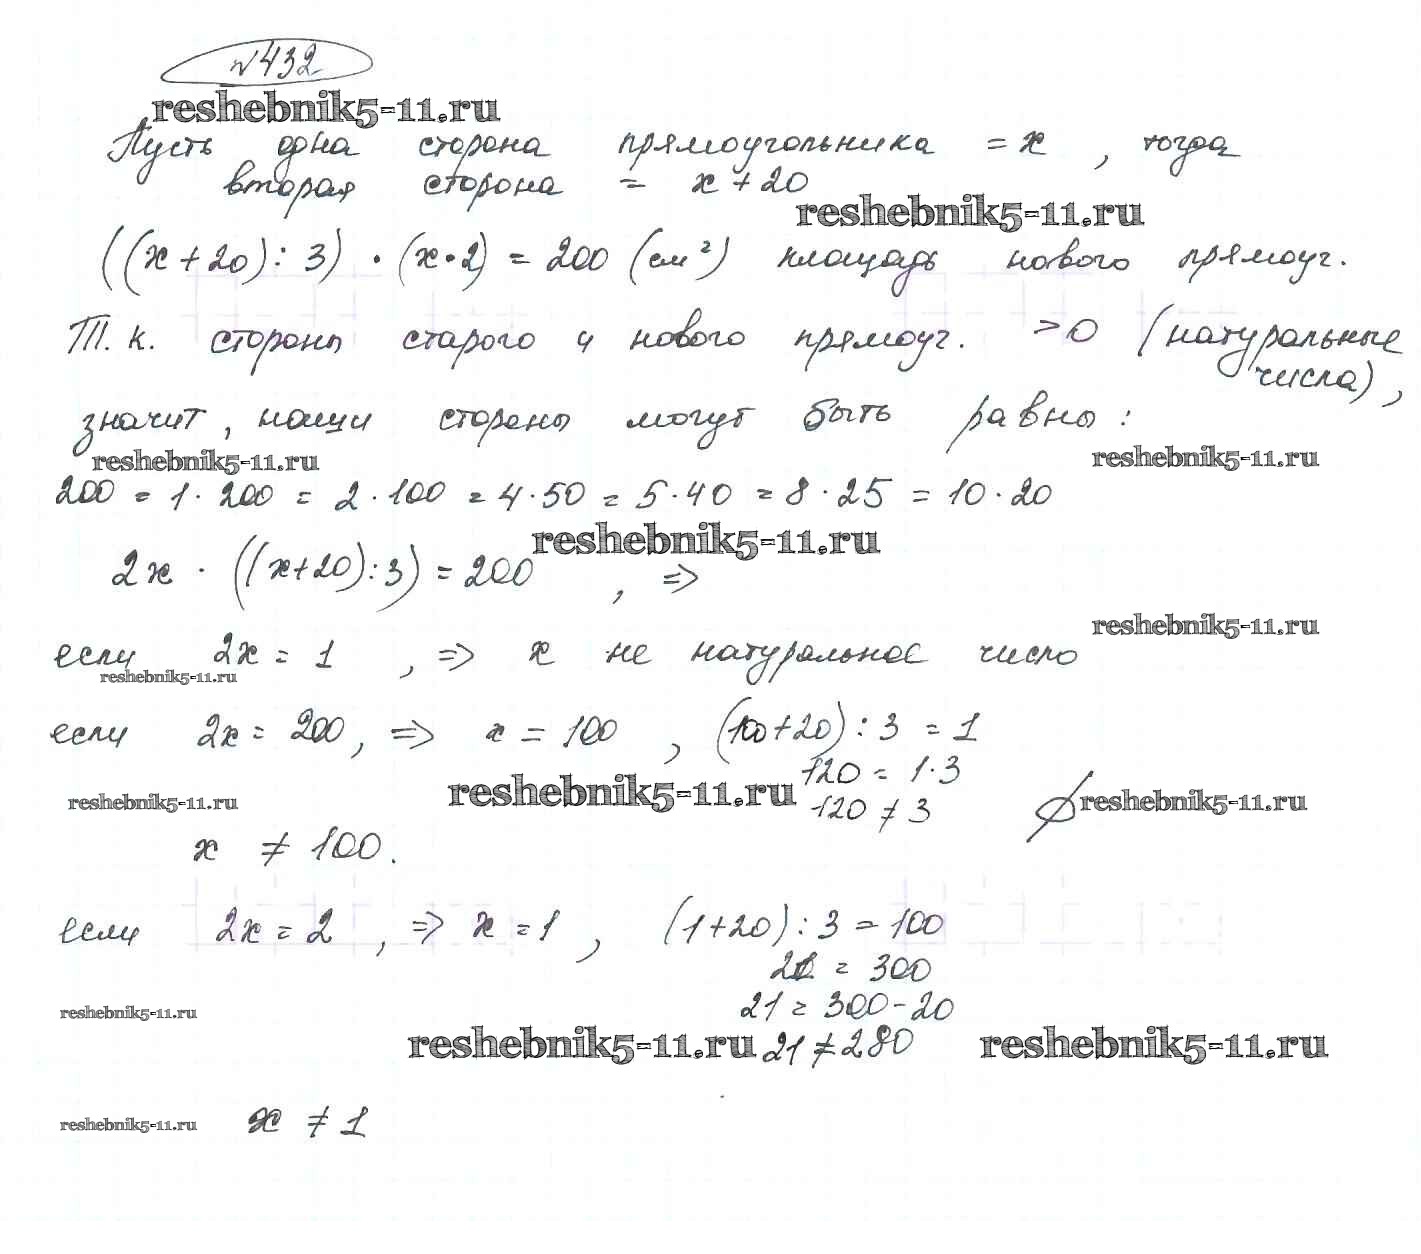 №432
reshebnik5-11.ru
Пусть одна сторона прямоугольника = x , тогда
вторая сторона = x + 20
reshebnik5-11.ru
((x + 20) : 3) · (x · 2) = 200 (см²) площадь нового прямоуг.
Т. к. стороны старого и нового прямоуг. > 0 (натуральные
числа),
значит, наши стороны могут быть равны :
reshebnik5-11.ru reshebnik5-11.ru
200 = 1 · 200 = 2 · 100 = 4 · 50 = 5 · 40 = 8 · 25 = 10 · 20
reshebnik5-11.ru
2x · ((x+20) : 3) = 200 , =>
reshebnik5-11.ru
если 2x = 1 , => x не натуральное число
reshebnik5-11.ru
если 2x = 200, => x = 100 , (100+20) : 3 = 1
120 = 1·3
reshebnik5-11.ru reshebnik5-11.ru 120 ≠ 3 ∅ reshebnik5-11.ru
x ≠ 100.
если 2x = 2 , => x = 1 , (1+20) : 3 = 100
21 = 300
reshebnik5-11.ru 21 = 300 - 20
reshebnik5-11.ru 21 ≠ 280 reshebnik5-11.ru
reshebnik5-11.ru x ≠ 1